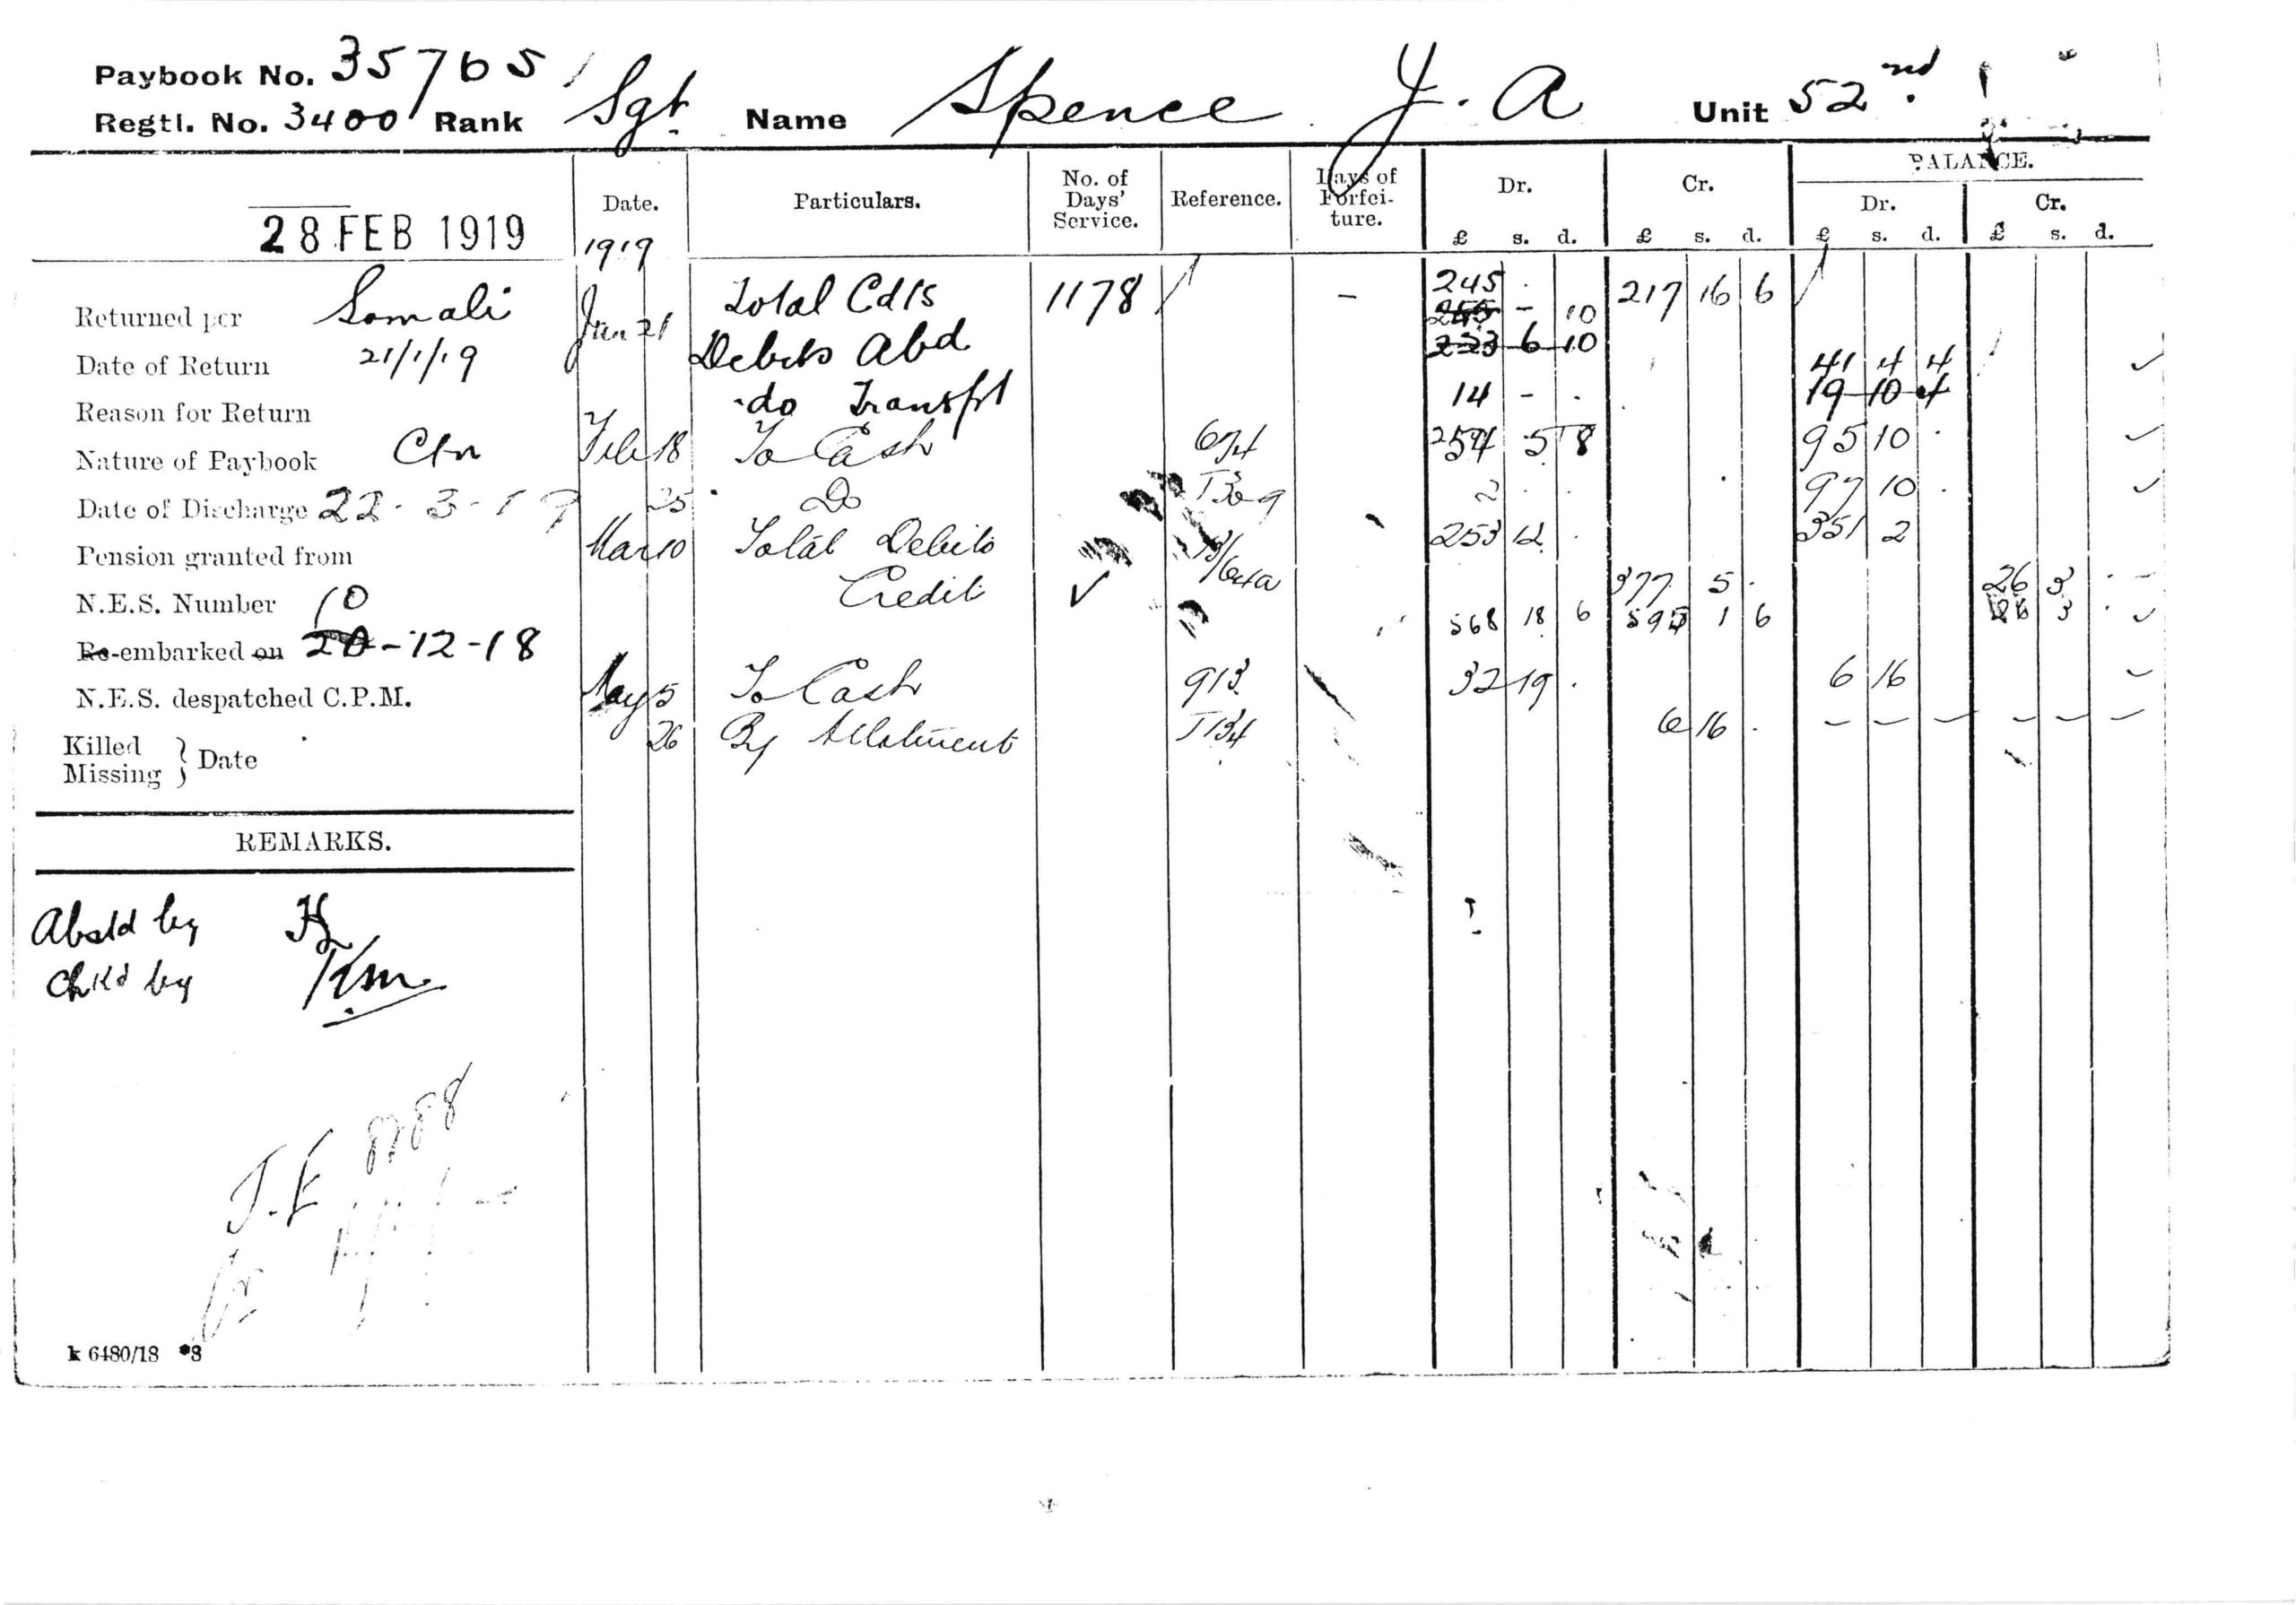 Paybook No. 35765
Regtl. No. 3400 Rank Sgt. Name Spence J. A Unit 52nd
28 FEB 1919
Date. Particulars. No. of Days' Service. Reference. Days of Forfeiture. Dr. Cr. BALANCE.
Dr. Cr.
£ s. d. £ s. d. £ s. d. £ s. d.
1919
Returned per Somali
Date of Return 21/1/19
Reason for Return
Nature of Paybook
Date of Discharge 22-3-19
Pension granted from
N.E.S. Number
Re-embarked on 20-12-18
10
N.E.S. despatched C.P.M.
Killed
Missing } Date
REMARKS.
Abstd by
Chkd by
Jan 21 Total Cdts 1178 - 245 . 217 16 6
- 10
Debits Abd 223 6 10 41 4 4
do Transfd 14 - . 19 10 4
Feb 18 To Cash 674 254 5 8 95 10 .
25 Do 2 . . 97 10 .
Mar 10 Total Debits 253 12 . 351 2
Credit 377 5 . 26 3 . -
568 18 6 595 1 6 26 3 .
May 5 To Cash 913 32 19 . 6 16
26 By Allotment T134 6 16 . - - - - - -
J.E 8788
k 6480/18 *8